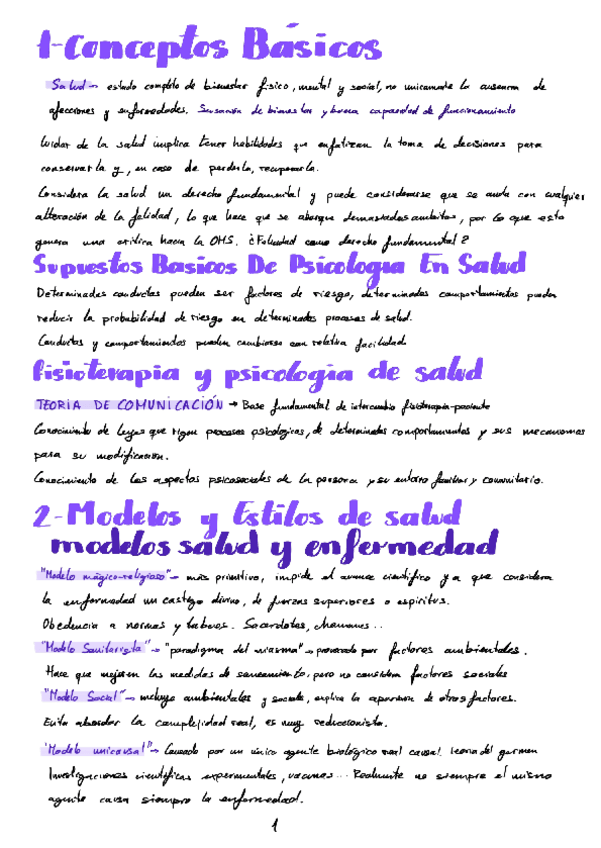 1-Conceptos Básicos
Salud → estado completo de bienestar físico, mental y social, no unicamente la ausencia de
afecciones y enfermedades. Sensación de bienestar y buena capacidad de funcionamiento
Cuidar de la salud implica tener habilidades que enfatizan la toma de decisiones para
conservarla y, en caso de perderla, recuperarla.
Considera la salud un derecho fundamental y puede considerarse que se anula con cualquier
alteración de la felicidad, lo que hace que se abarque demasiados ambitos, por lo que esto
genera una critica hacia la OMS. ¿Felicidad como derecho fundamental?
Supuestos Basicos De Psicologia En Salud
Determinadas conductas pueden ser factores de riesgo, determinados comportamientos pueden
reducir la probabilidad de riesgo en determinados procesos de salud.
Conductas y comportamientos pueden cambiarse con relativa facilidad.
fisioterapia y psicologia de salud
TEORIA DE COMUNICACIÓN → Base fundamental de intercambio fisioterapia-paciente
Conocimiento de leyes que rigen procesos psicologicos, de determinados comportamientos y sus mecanismos
para su modificación.
Conocimiento de los aspectos psicosociales de la persona y su entorno familiar y comunitario.
2-Modelos y Estilos de salud
modelos salud y enfermedad
"Modelo mágico-religioso" → más primitivo, impide el avance científico ya que considera
la enfermedad un castigo divino, de fuerzas superiores o espiritus.
Obediencia a normas y tabues. Sacerdotes, chamanes..
"Modelo Sanitarista" → "paradigma del miasma" → provocado por factores ambientales.
Hace que mejoren las medidas de saneamiento, pero no considera factores sociales
"Modelo Social" → incluye ambientales y sociales, explica la aparicion de otros factores.
Evita abordar la complejidad real, es muy reduccionista.
"Modelo unicausal" → causado por un único agente biológico real causal. Teoria del germen
Investigaciones científicas experimentales, vacunas... Realmente no siempre el mismo
agente causa siempre la enfermedad.
1